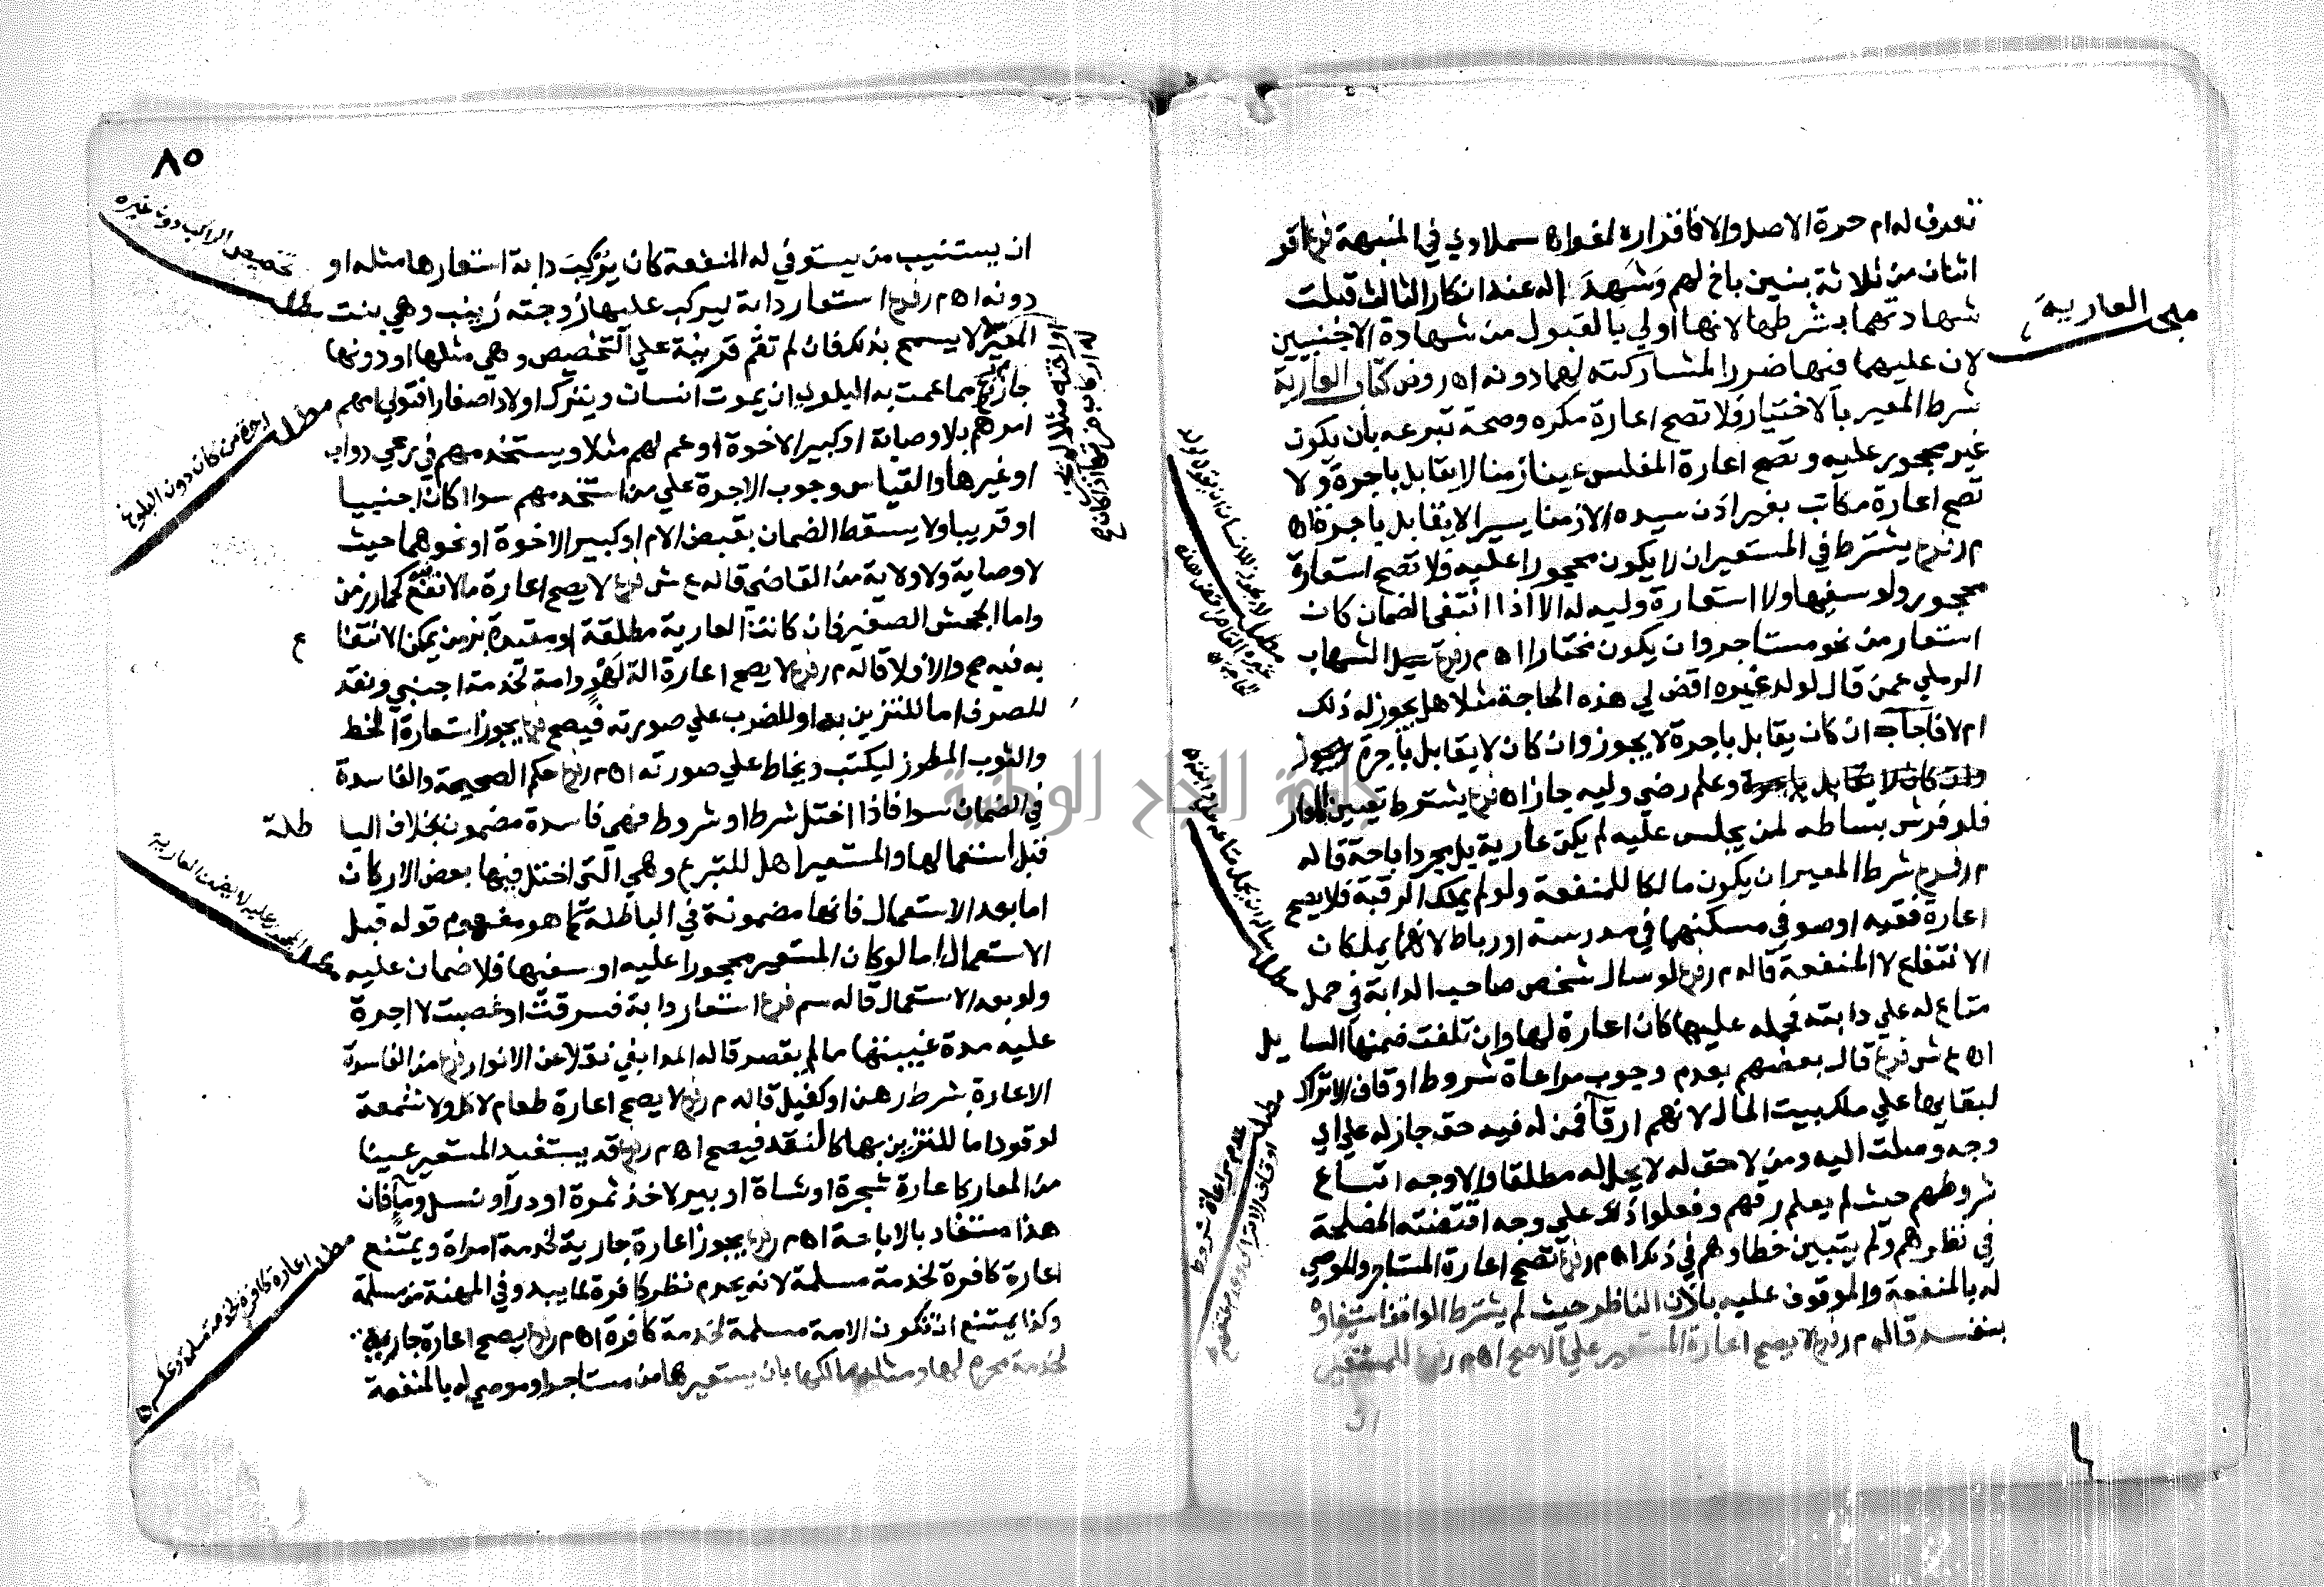 تعرف له ام حرة الاصل والا فاقراره لغو اه سملاوي في المنبهة فرع اقر
اثنان من ثلاثة بنين باخ لهم وشهدا له عند انكار الثالث قبلت
شهادتهما بشرطها لانها اولي بالقبول من شهادة الاجنبيين
لان عليهما فيها ضرر المشاركته لهما دونه اه روض كتاب العارية
شرط المعير بالاختيار فلا تصح اعارة مكره وصحة تبرعه بان يكون
غير محجور عليه وتصح اعارة المفلس عينا زمنا لا يقابل باجرة ولا
تصح اعارة مكاتب بغير اذن سيده الا زمنا يسيرا لا يقابل باجرة اه
م ر فرع يشترط في المستعير ان لا يكون محجورا عليه فلا تصح استعارة
محجور ولو سفيها ولا استعارة وليه له الا اذا انتفى الضمان كان
استعار من نحو مستاجر وان يكون مختارا اه م ر فرع سيل الشهاب
الرملي عمن قال لولد غيره اقض لي هذه الحاجة مثلا هل يجوز له ذلك
ام لا فاجاب ان كان يقابل باجرة لا يجوز وان كان لا يقابل باجرة
وعلم رضي وليه جاز اه فرع يشترط تعيين المعار
فلو فرش بساطه لمن يجلس عليه لم يكن عارية بل مجرد اباحة قاله
م ر فرع شرط المعير ان يكون مالكا للمنفعة ولو لم يملك الرقبة فلا يصح
اعارة فقيه او صوفي مسكنهما في مدرسة او رباط لانهما يملكان
الانتفاع لا المنفعة قاله م ر فرع لو سال شخص صاحب الدابة في حمل
متاع له علي دابته فحمله عليها كان اعارة لها وان تلفت ضمنها السايل
اه ع ش فرع قال بعضهم بعدم وجوب مراعاة شروط اوقاف الاتراك
لبقايها علي ملك بيت المال لانهم ارقا فمن له فيه حق جاز له علي اي
وجه وصلت اليه ومن لا حق له لا يحل له مطلقا والاوجه اتباع
شروطهم حيث لم يعلم رقهم وفعلوا ذلك علي وجه اقتضته المصلحة
في نظرهم ولم يتبين خطاوهم في ذلك اه م ر فرع تصح اعارة المستاجر والموصي
له بالمنفعة والموقوف عليه باذن الناظر حيث لم يشترط الواقف استيفاوه
بنفسه قاله م ر فرع لا يصح اعارة المستعير علي الاصح اه م ر فرع للمستعير
العارية
٨٥
تخصيص الراكب دون غيره
ان يستنيب من يستوفي له المنفعة كان يركب دابة استعارها مثله او
دونه اه م ر فرع استعار دابة ليركب عليها زوجته زينب وهي بنت
المعير لا يسمح بذلك فان لم تقم قرينة علي التخصيص وهي مثلها او دونها
جاز فرع مما عمت به البلوي ان يموت انسان ويترك اولادا صغارا فتولي امهم
امرهم بلا وصاية او كبير الاخوة او عم لهم مثلا ويستخدمهم في رعي دواب
او غيرها والقياس وجوب الاجرة علي من استخدمهم سوا كان اجنبيا
او قريبا ولا يسقط الضمان بقبض الام او كبير الاخوة او نحوهما حيث
لا وصاية ولا ولاية من القاضي قاله ع ش فرع لا يصح اعارة ما لا نفع كحمار زمن
واما الجحش الصغير فان كانت العارية مطلقة او مقيدة بزمن يمكن الانتفاع
به فيه صح والا فلا قاله م ر فرع لا يصح اعارة الة لهو وامة لخدمة اجنبي ونقد
للصرف اما للتزين به او للضرب علي صورته فيصح فرع يجوز استعارة الخط
والثوب المطرز ليكتب ويخاط علي صورته اه م ر فرع حكم الصحيحة والفاسدة
في الضمان سوا فاذا اختل شرط او شروط فهي فاسدة مضمونة بخلاف الباطلة
قبل استعمالها والمستعير اهل للتبرع وهي التي اختل فيها بعض الاركان
اما بعد الاستعمال فانها مضمونة في الباطلة كما هو مفهوم قوله قبل
الاستعمال اما لو كان المستعير محجورا عليه او سفيها فلا ضمان عليه
ولو بعد الاستعمال قاله سم فرع استعار دابة فسرقت او غصبت لا اجرة
عليه مدة غيبتها ما لم يقصر قاله المدابغي نقلا عن الانوار فرع من الفاسدة
الاعارة بشرط رهن او كفيل قاله م ر فرع لا يصح اعارة طعام لاكل ولا شمعة
لوقود اما للتزين بها كالنقد فيصح اه م ر فرع قد يستفيد المستعير عينا
من المعار كاعارة شجرة او شاة او بير لاخذ ثمرة او در او نسل وما فان
هذا مستفاد بالاباحة اه م ر فرع يجوز اعارة جارية لخدمة امراة ويمتنع
اعارة كافرة لخدمة مسلمة لانه يحرم نظر كافرة لما يبدو في المهنة من مسلمة
وكذا يمتنع ان تكون الامة مسلمة لخدمة كافرة اه م ر فرع يصح اعارة جارية
لخدمة محرم لها ومثله مالكها بان يستعيرها من مستاجر او موصي له بالمنفعة